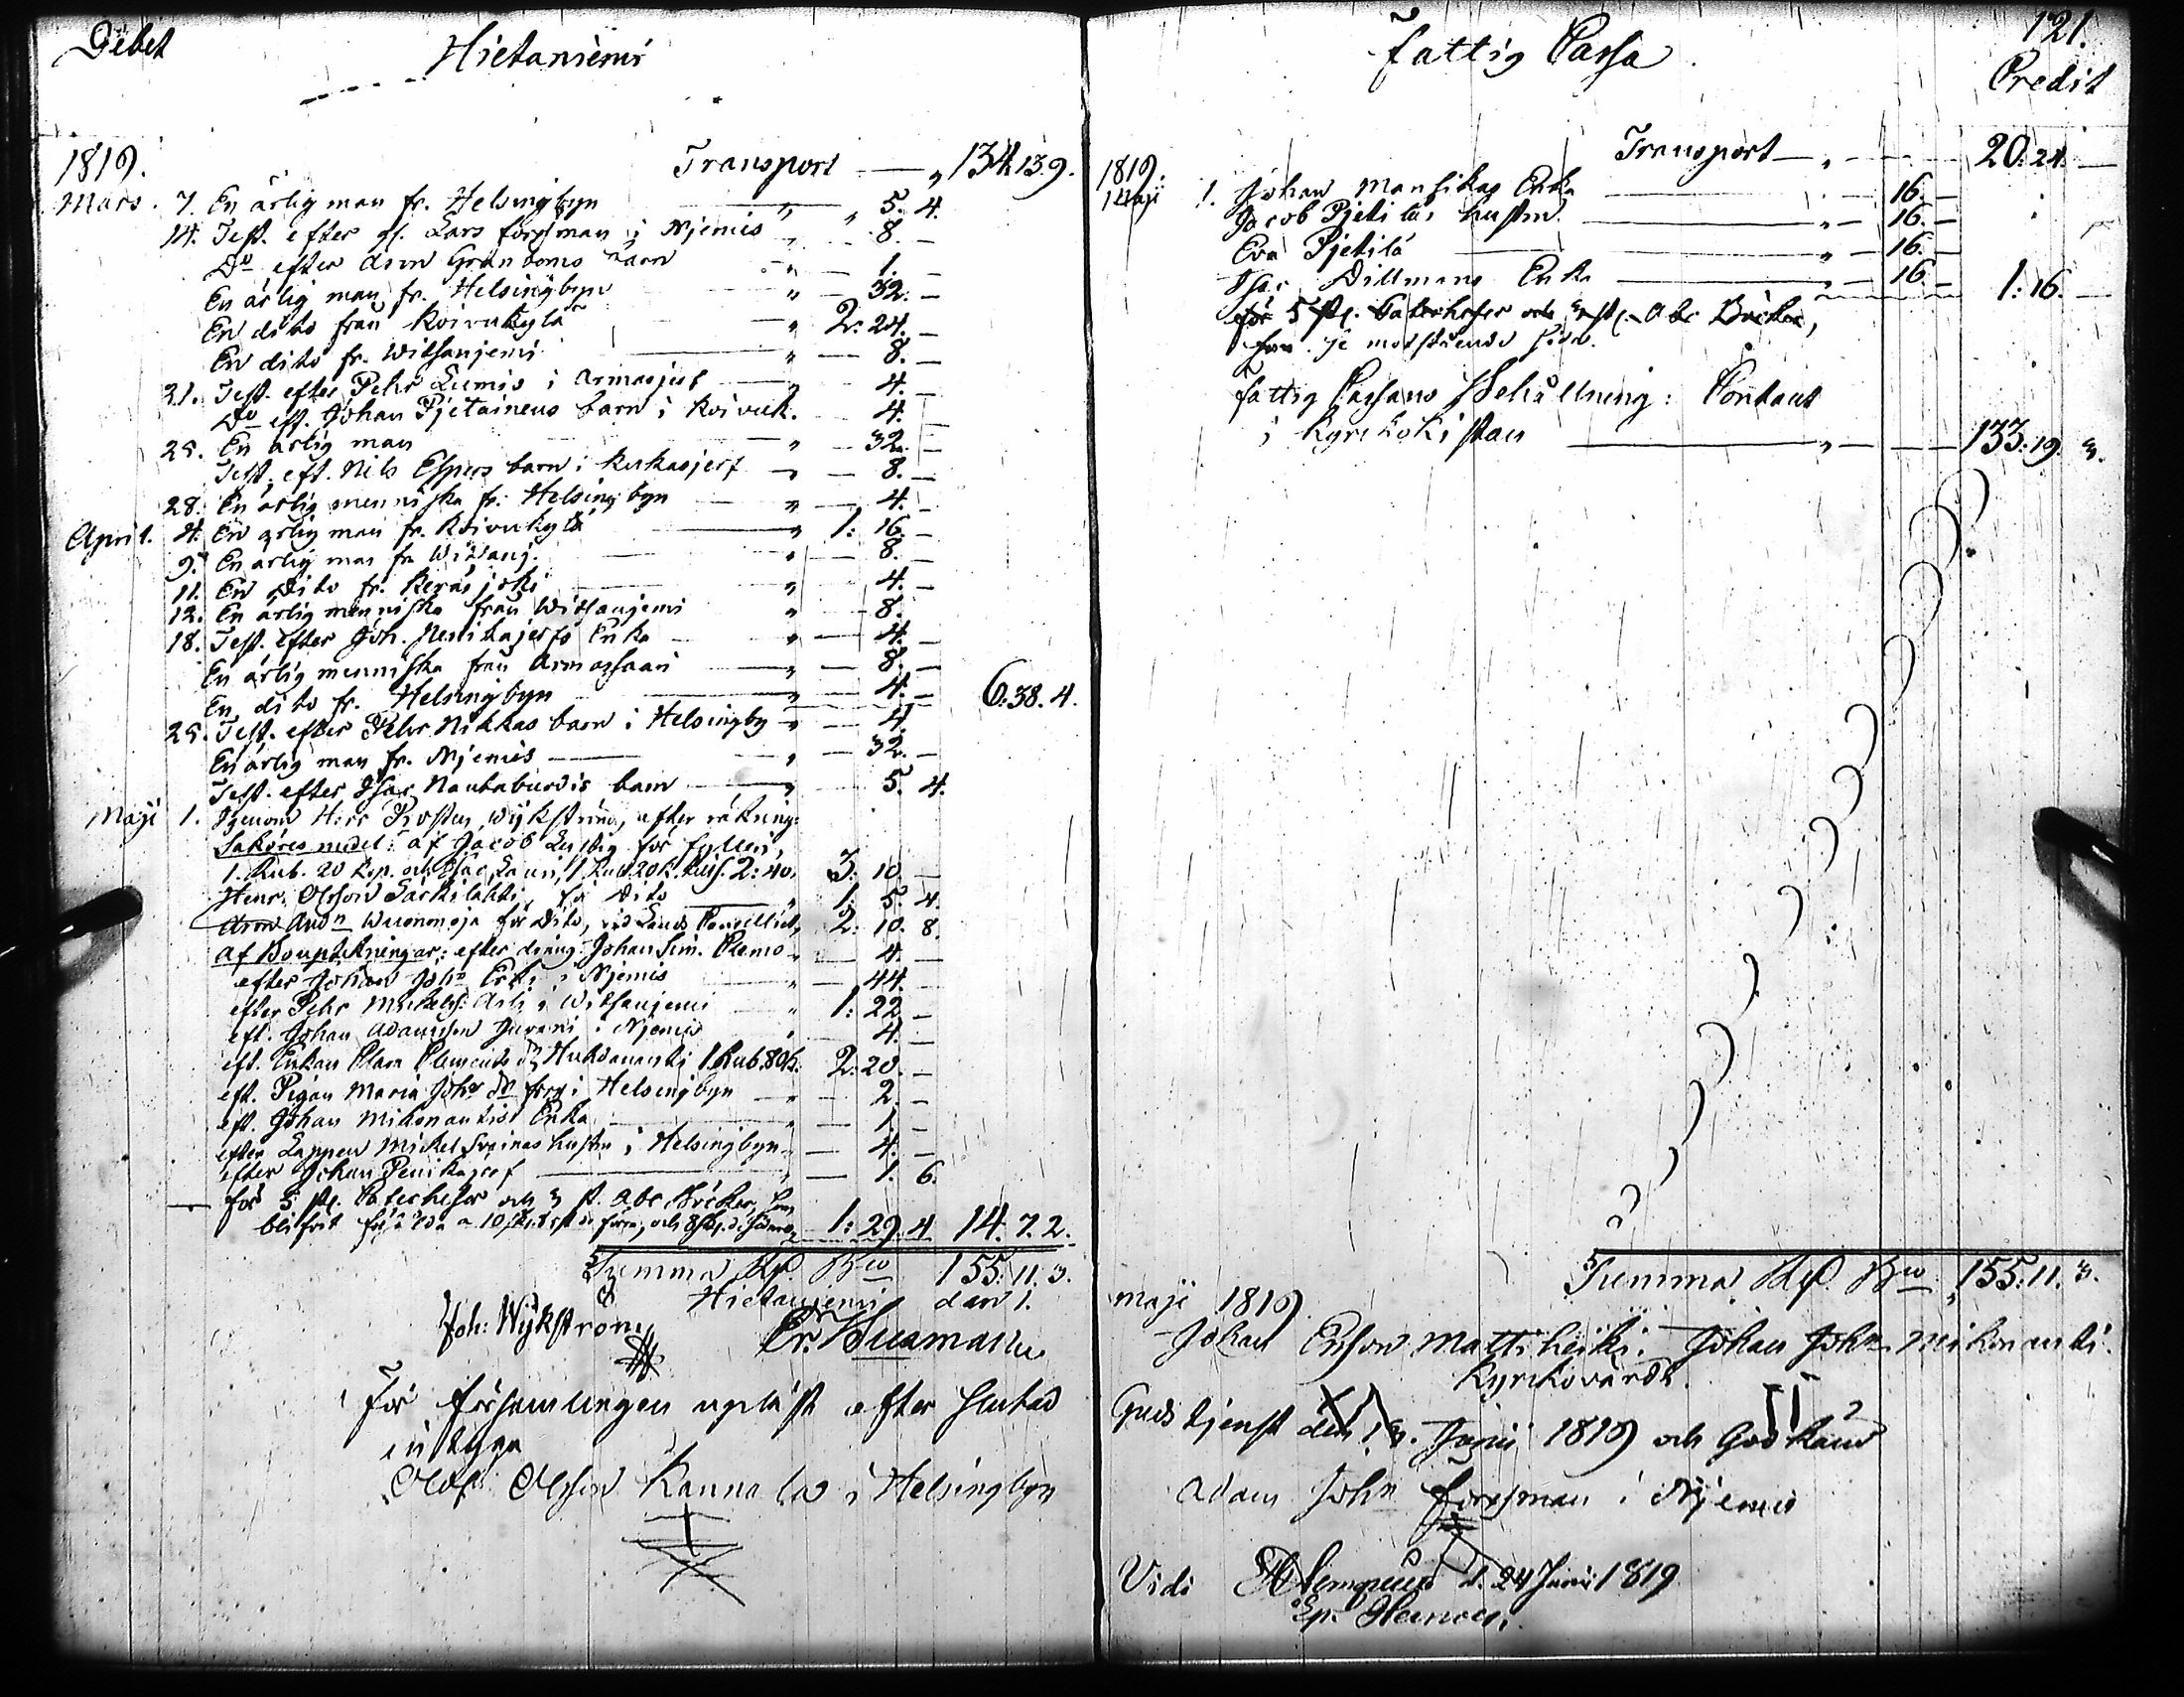 Debet
Hietaniemi
1819.
Transport — „ 134.13.9.
Mars. 7. En ärlig man fr. Helsingbyn „ 5. 4.
14. Test. efter gl. Lars Forssman i Njemis „ 8. —
Do efter Aron Grandoms barn „ 1. —
En ärlig man fr. Helsingbyn „ 32. —
En dito från Koivukylä „ 2: 24. —
En dito fr. Witsanjemi „ 8. —
21. Test. efter Pehr Lumis i Armasjerf „ 4. —
Do eft. Johan Pjetäinens barn i Koivuk. 4. —
25. En ärlig man „ 32. —
Test. eft. Nils Espers barn i Kukasjerf „ 8. —
28. En ärlig menniska fr. Helsingbyn „ 4. —
April. 4. En ärlig man fr. Koivukylä „ 1: 16. —
9. En ärlig man fr. Witsanj. „ 8. —
11. En Dito fr. Keräsjoki „ 4. —
12. En ärlig menniska från Witsanjemi „ 8. —
18. Test. efter Joh. Penikajerfs Enka „ 4. —
En ärlig menniska från Armassaari „ 8. —
En dito fr. Helsingbyn „ 4. — 6:38.4.
25. Test. efter Pehr Nikkas barn i Helsingby „ 4.
En ärlig man fr. Njemis „ 32. —
Test. efter Isac Nautaburdis barn „ 5. 4.
Maji 1. Genom Herr Prosten Wijkström, efter räkning:
Saköres medel: af Jacob Lustig för fylleri,
1. Rub. 20 kop. och Isac Lauri, 1 Rub. 20 k. 2: 40. 3: 10 —
Henr. Olsson Särkilahti, för Dito „ 1: 5. 4.
Aron And:n Wuonnoja för Dito, 2: 10. 8.
Af Boupteckningar: efter dräng Johan Sim. Clemo „ 4. —
efter Johan Joh:s Erki i Njemis „ 44. —
efter Pehr Mickelss: i Witsanjemi „ 1: 22. —
eft. Johan Adamsson i Njemis „ 4. —
eft. Enkan Clara Clements dr 1. Rub. 80 k. 2: 20. —
eft. Pigan Maria Joh:s dr i Helsingbyn „ 2. —
eft. Johan Mikonantis Enka „ 1. —
efter Lappen Mickel hustru i Helsingbyn „ 4. —
efter Johan Penikajerf „ 1. 6.
för 5 st. Catecheser och 3 st. abc Böcker, som
blifvit försålda a 10 sk. 8 rst de förra, och 8 sk. de sednare 1: 29. 4 14.7.2.
Summa Rd. Bco 155:11.3.
Hietanjemi den 1.
Joh: Wijkström Er. Husmark
För församlingen upläst efter slutad
intyga
Olof Olsson Kannala i Helsingbyn
121.
Fattig Cassa
Credit
1819. Transport — „ 20:24. —
Maji 1. Johan Mansikas Enka 16. —
Jacob Pjetiläs hustru „ 16. —
Eva Pjetilä „ 16. —
Isac Dillmans Enka „ 16. — 1:16. —
för 5 st. Catecheser och 3 st. Abc Böcker,
se motstående sida.
Fattig Cassans Behållning: Contant
i Kyrkokistan „ 133:19. 3.
Summa Rd. Bco „ 155:11.3.
Maji 1819
Johan Ersson Mattiheiki. Johan Johs: Mikonanti.
Kyrkovärdr.
Gudstjenst den 13. Junii 1819 och Godkänd
Adam John Forssman i Njemis
Vidi d. 24 Junii 1819
Ep. Hernoes.